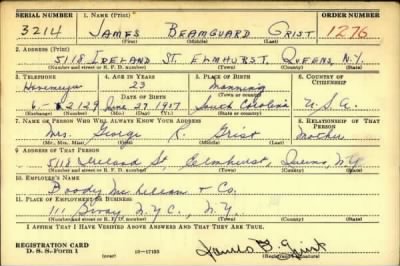 SERIAL NUMBER 1. NAME (Print) ORDER NUMBER
3214 JAMES BEAMGUARD GRIST 1276
(First) (Middle) (Last)
2. ADDRESS (Print)
5118 IRELAND ST. ELMHURST, QUEENS, N.Y.
(Number and street or R. F. D. number) (Town) (County) (State)
3. TELEPHONE 4. AGE IN YEARS 5. PLACE OF BIRTH 6. COUNTRY OF CITIZENSHIP
Havemeyer 23 Manning
(Town or county)
DATE OF BIRTH
6-2129 June 27 1917 South Carolina U.S.A.
(Exchange) (Number) (Mo.) (Day) (Yr.) (State or country)
7. NAME OF PERSON WHO WILL ALWAYS KNOW YOUR ADDRESS 8. RELATIONSHIP OF THAT PERSON
Mrs. George R. Grist Mother
(Mr., Mrs., Miss) (First) (Middle) (Last)
9. ADDRESS OF THAT PERSON
5118 Ireland St, Elmhurst, Queens, N.Y.
(Number and street or R. F. D. number) (Town) (County) (State)
10. EMPLOYER'S NAME
Doody McLellan & Co.
11. PLACE OF EMPLOYMENT OR BUSINESS
111 Bway N.Y.C., N.Y.
(Number and street or R. F. D. number) (Town) (County) (State)
I AFFIRM THAT I HAVE VERIFIED ABOVE ANSWERS AND THAT THEY ARE TRUE.
REGISTRATION CARD
D. S. S. Form 1 (over) 16—17105 James B. Grist
(Registrant's signature)